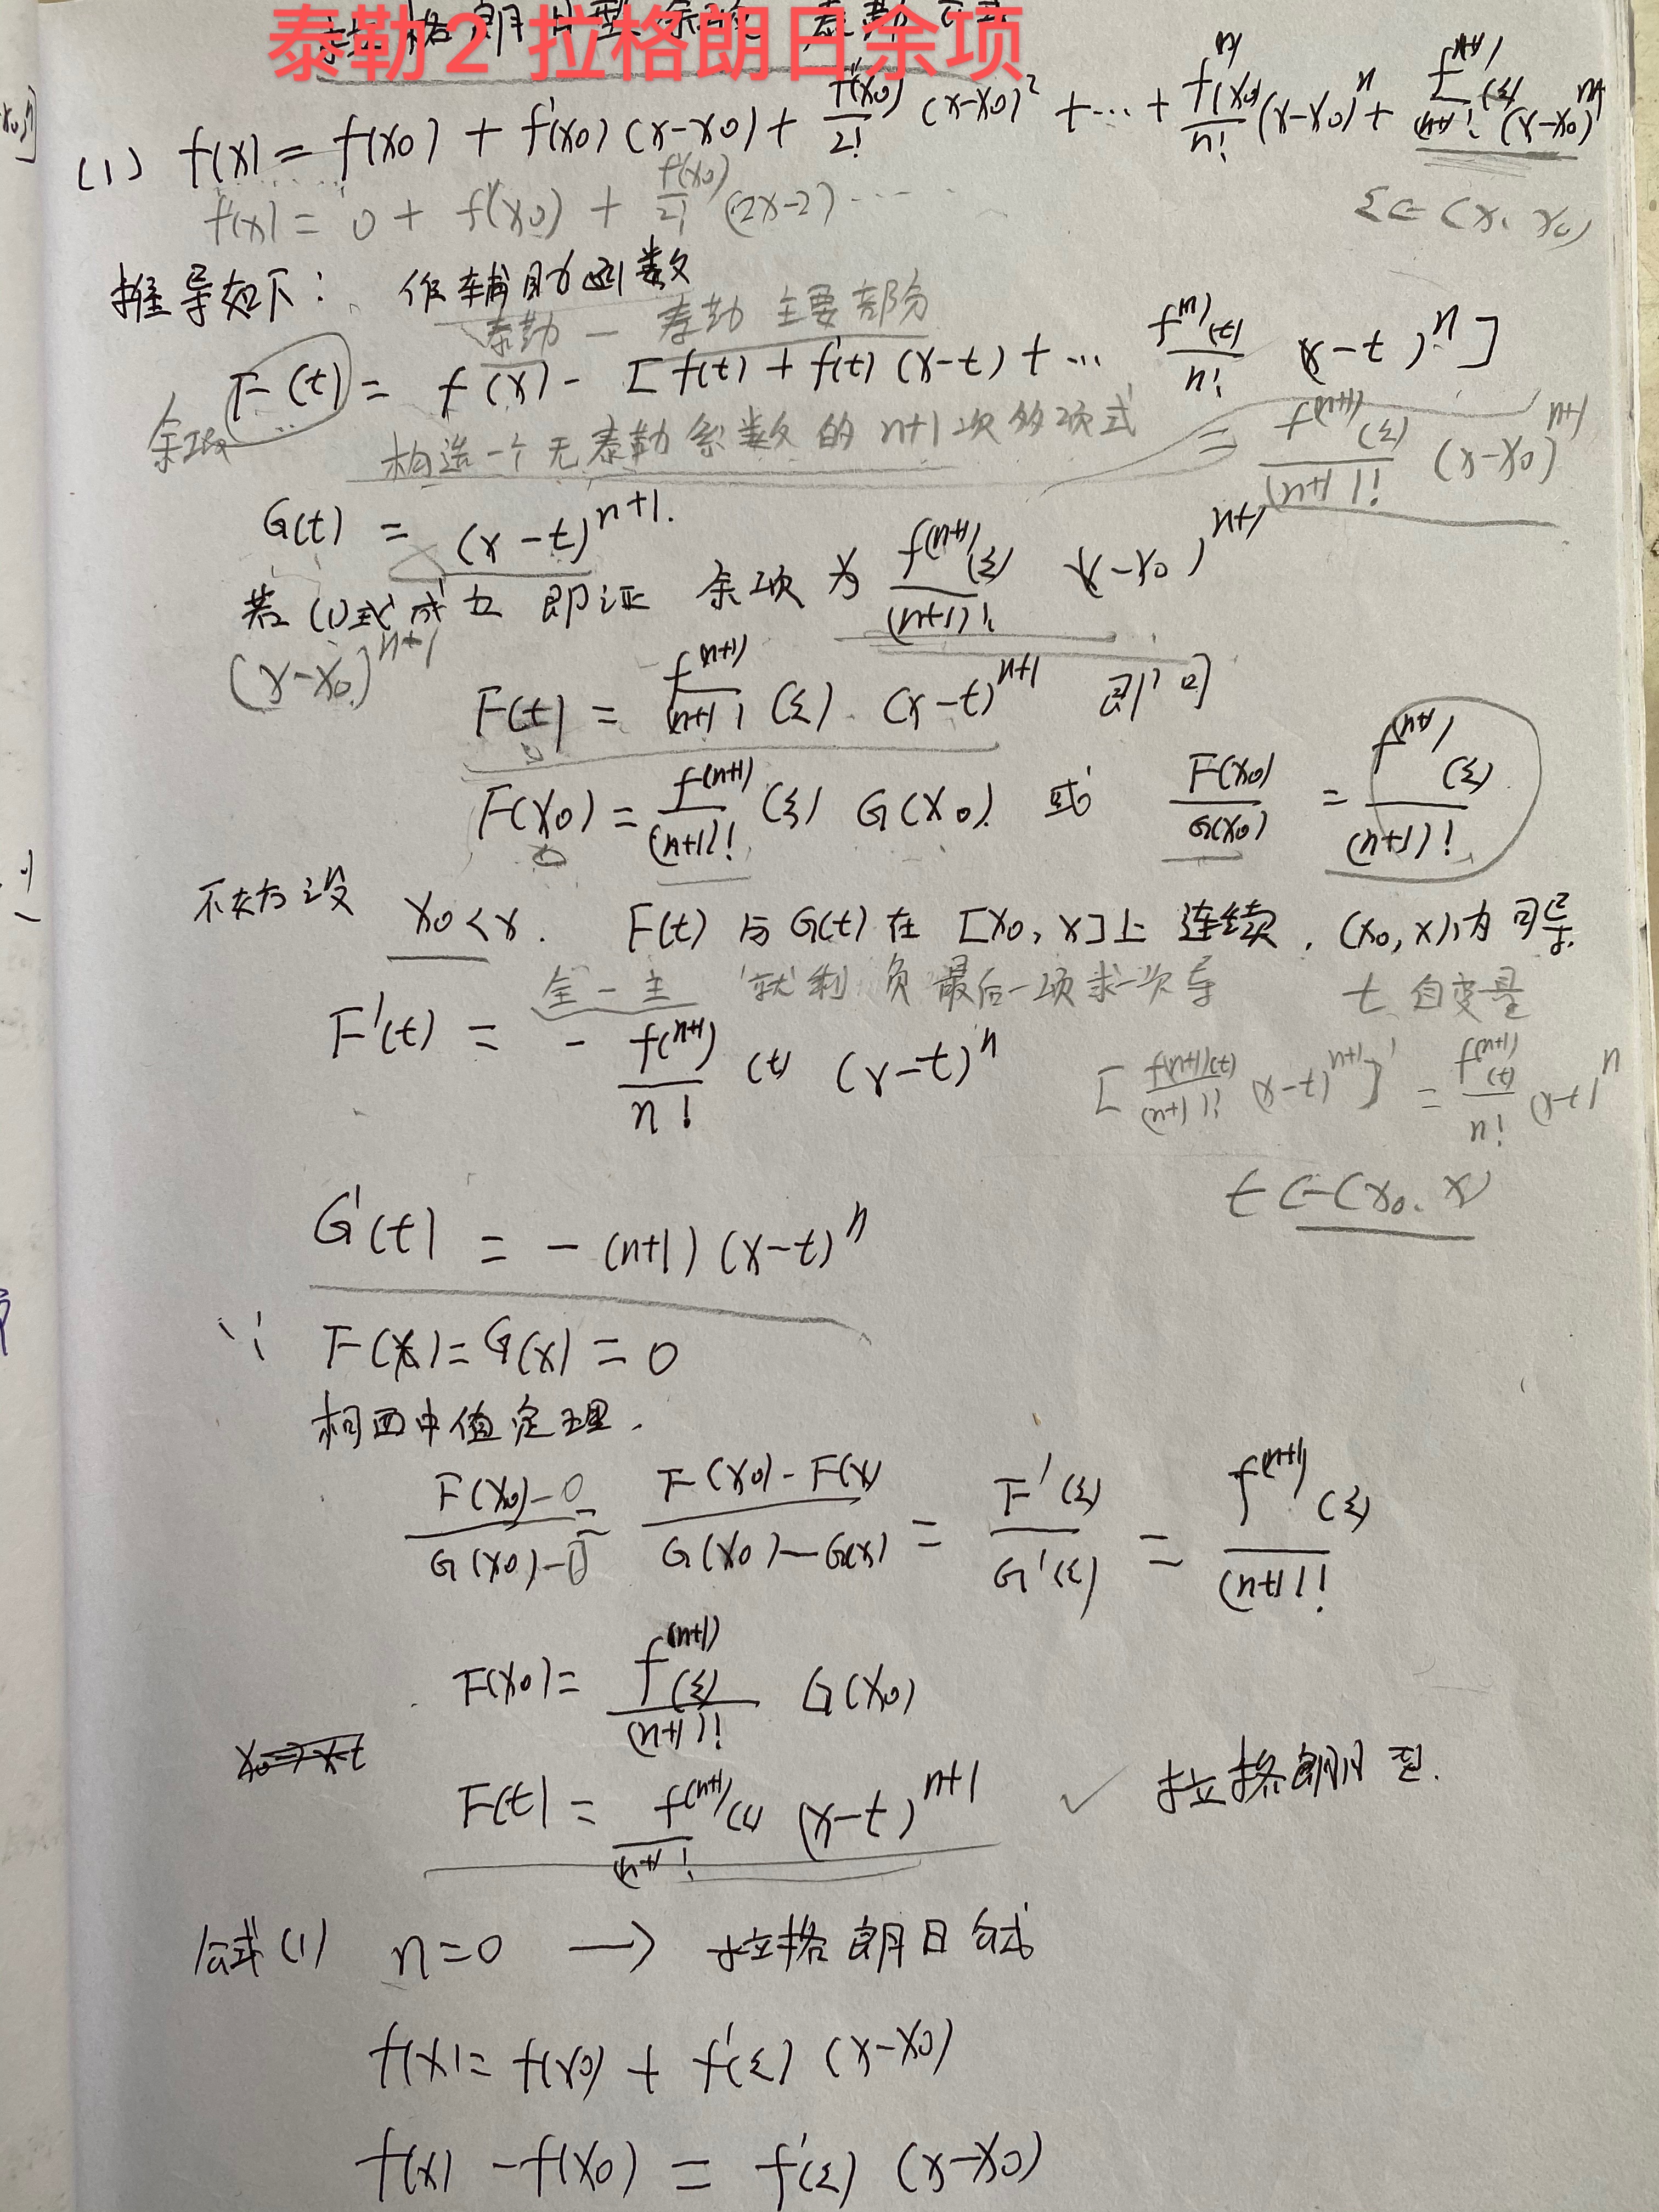 泰勒2 拉格朗日余项
拉格朗日型余项 泰勒公式
(1) f(x) = f(x0) + f'(x0)(x-x0) + f''(x0)/2! (x-x0)^2 + … + f^(n)(x0)/n! (x-x0)^n + f^(n+1)(ξ)/(n+1)! (x-x0)^(n+1)
f'(x) = 0 + f'(x0) + f''(x0)/2! (2x-2) ……
ξ∈(x, x0)
推导如下: 作辅助函数
泰勒 — 泰勒 主要部分
F(t) = f(x) - [f(t) + f'(t)(x-t) + … f^(n)(t)/n! (x-t)^n]
余项 构造一个无泰勒系数的n+1次多项式 = f^(n+1)(ξ)/(n+1)! (x-x0)^(n+1)
G(t) = (x-t)^(n+1).
若(1)式成立 即证 余项为 f^(n+1)(ξ)/(n+1)! (x-x0)^(n+1)
(x-x0)^(n+1)
F(t) = f^(n+1)/(n+1)! (ξ) (x-t)^(n+1) 即可
F(x0) = f^(n+1)/(n+1)! (ξ) G(x0). 或 F(x0)/G(x0) = f^(n+1)(ξ)/(n+1)!
不妨设 x0<x. F(t) 与 G(t) 在 [x0, x]上 连续, (x0, x)内可导.
全-主 就剩 负最后一项求一次导 t 自变量
F'(t) = - f^(n+1)/n! (t) (x-t)^n
[f^(n+1)(t)/(n+1)! (x-t)^(n+1)]' = f^(n+1)(t)/n! (x-t)^n
t∈(x0, x)
G'(t) = -(n+1)(x-t)^n
∵ F(x) = G(x) = 0
柯西中值定理.
(F(x0)-0)/(G(x0)-0) = (F(x0)-F(x))/(G(x0)-G(x)) = F'(ξ)/G'(ξ) = f^(n+1)(ξ)/(n+1)!
F(x0) = f^(n+1)(ξ)/(n+1)! G(x0)
F(t) = f^(n+1)(ξ)/(n+1)! (x-t)^(n+1) ✓ 拉格朗日型.
公式(1) n=0 → 拉格朗日公式
f(x) = f(x0) + f'(ξ)(x-x0)
f(x) - f(x0) = f'(ξ)(x-x0)